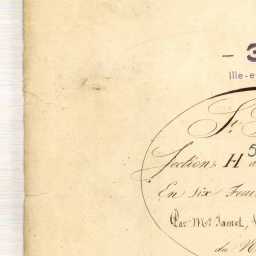 - 3
Ille-e
St
Section H 5
En Six Feui
Par Mr Jamet,
du N